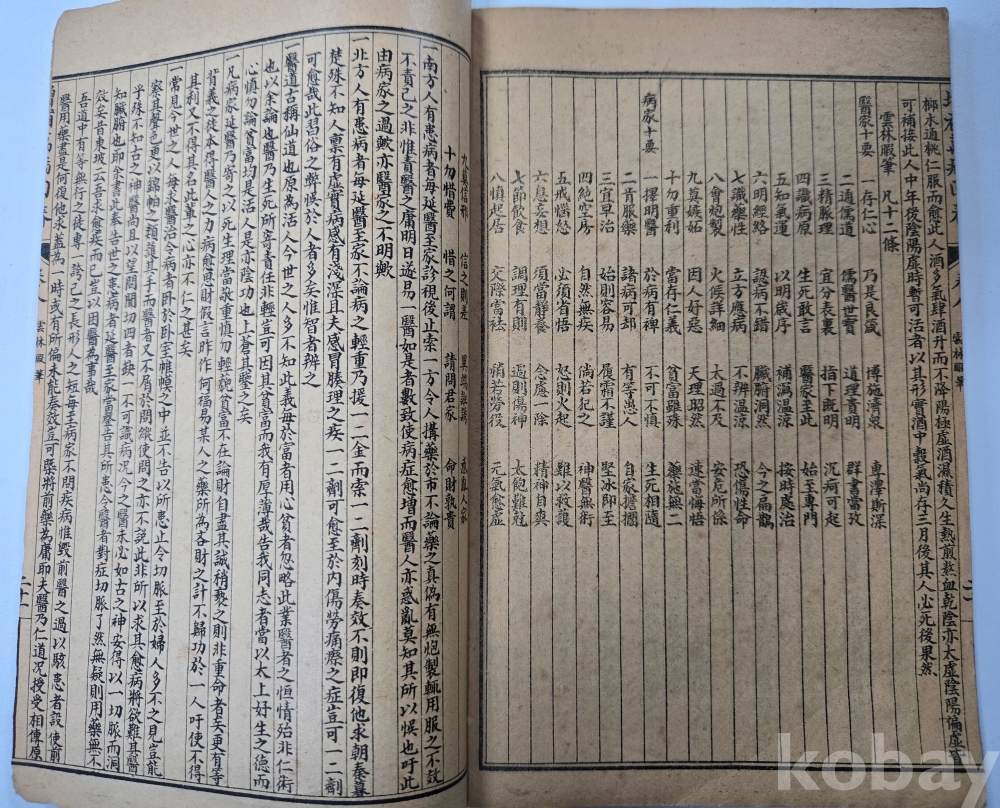 榔木通桃仁服而愈此人酒多氣肆酒升而不降陽極虛酒濕積久生熱煎熬血乾陰亦太虛陰陽偏虛皆
可補接此人中年後陰陽虛時暫可活者以其形實酒中穀氣尚存三月後其人必死後果然
雲林暇筆 凡十二條
醫家十要
一存仁心 乃是良箴 博施濟眾 惠澤斯深
二通儒道 儒醫世寶 道理貴明 群書當攷
三精脈理 宜分表裏 指下既明 沉疴可起
四識病原 生死敢言 醫家至此 始至專門
五知氣運 以明歲序 補瀉溫涼 按時處治
六明經絡 認病不錯 臟腑洞然 今之扁鵲
七識藥性 立方應病 不辨溫涼 恐傷性命
八會炮製 火候詳細 太過不及 安危所係
九莫嫉妬 因人好惡 天理昭然 速當悔悟
十勿重利 當存仁義 貧富雖殊 藥施無二
病家十要
一擇明醫 於病有裨 不可不慎 生死相隨
二肯服藥 諸病可却 有等愚人 自家擔擱
三宜早治 始則容易 履霜不謹 堅冰即至
四絕空房 自然無疾 倘若犯之 神醫無術
五戒惱怒 必須省悟 怒則火起 難以救護
六息妄想 須當靜養 念慮一除 精神自爽
七節飲食 調理有則 過則傷神 太飽難尅
八慎起居 交際當祛 稍若勞役 元氣愈虛
九莫信邪 信之則差 異端誑誘 惑亂人家
十勿惜費 惜之何謂 請問君家 命財孰貴
一南方人有患病者每延醫至家診視後止索一方令人搆藥於市不論藥之真偽有無炮製輒用服之不效
不責己之非惟責醫之庸明日遂易一醫如是者數致使病症愈增而醫人亦惑亂莫知其所以悞也吁此
由病家之過歟亦醫家之不明歟
一北方人有患病者每延醫至家不論病之輕重乃援一二金而索一二劑刻時奏效不則即復他求朝秦暮
楚殊不知人稟有虛實病感有淺深且夫感冒腠理之疾一二劑可愈至於內傷勞瘵之症豈可一二劑
可愈哉此習俗之弊悞於人者多矣惟智者辨之
一醫道古稱仙道也原為活人今世之人多不知此義每於富者用心貧者忽略此業醫者之恒情殆非仁術
也以余論也醫乃生死所寄責任非輕豈可因其貧富而我有厚薄哉告我同志者當以太上好生之德而
心慎勿論貧富均是活人是亦陰功也上蒼其鑒之矣
一凡病家延醫乃寄之以死生理當敬重慎勿輕貌貧富不在論財自盡其誠稍褻之則非重命者矣更有等
背義之徒本得醫人之力病愈思財假言昨作何福易某人之藥所為吝財之計不歸功於一人吁使不得
其利又失其名此輩之心亦不仁之甚矣
一常見今世之人每求醫治令病者臥於臥室帷幙之中並不告以所患止令切脈至於婦人多不之見豈能
察其聲色更以錦帕之類護其手而醫者又不屑於問縱使問之亦不說此非所以求其愈病將欲難其醫
乎殊不知古之神醫尚且以望聞問切四者缺一不可識病況今之醫未必如古之神安得以一切脈而洞
知臟腑也即余書此奉告世之患病者延醫至家當罄告其所患令醫者對症切脈了然無疑則用藥無不
效矣昔東坡云吾求愈疾而已豈以困醫為事哉
一吾道中有等無行之徒專一誇己之長形人之短每至病家不問疾病惟毀前醫之過以駭患者設使前
醫用藥盡是何復他求蓋為一時或有所偏未能奏效豈可槩將前藥為庸耶夫醫乃仁道況授受相傳原
雲林暇筆
二十一
kobay